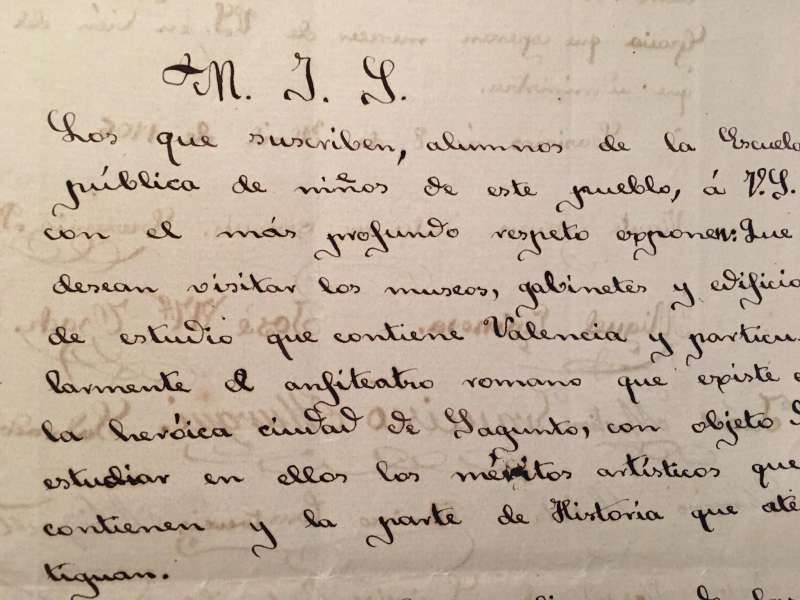 M. I. S.
Los que suscriben, alumnos de la Escuela
pública de niños de este pueblo, á V.S.
con el más profundo respeto exponen: Que
desean visitar los museos, gabinetes y edificio
de estudio que contiene Valencia y particu-
larmente el anfiteatro romano que existe e
la heróica ciudad de Sagunto, con objeto d
estudiar en ellos los méritos artísticos que
contienen y la parte de Historia que ate
tiguan.